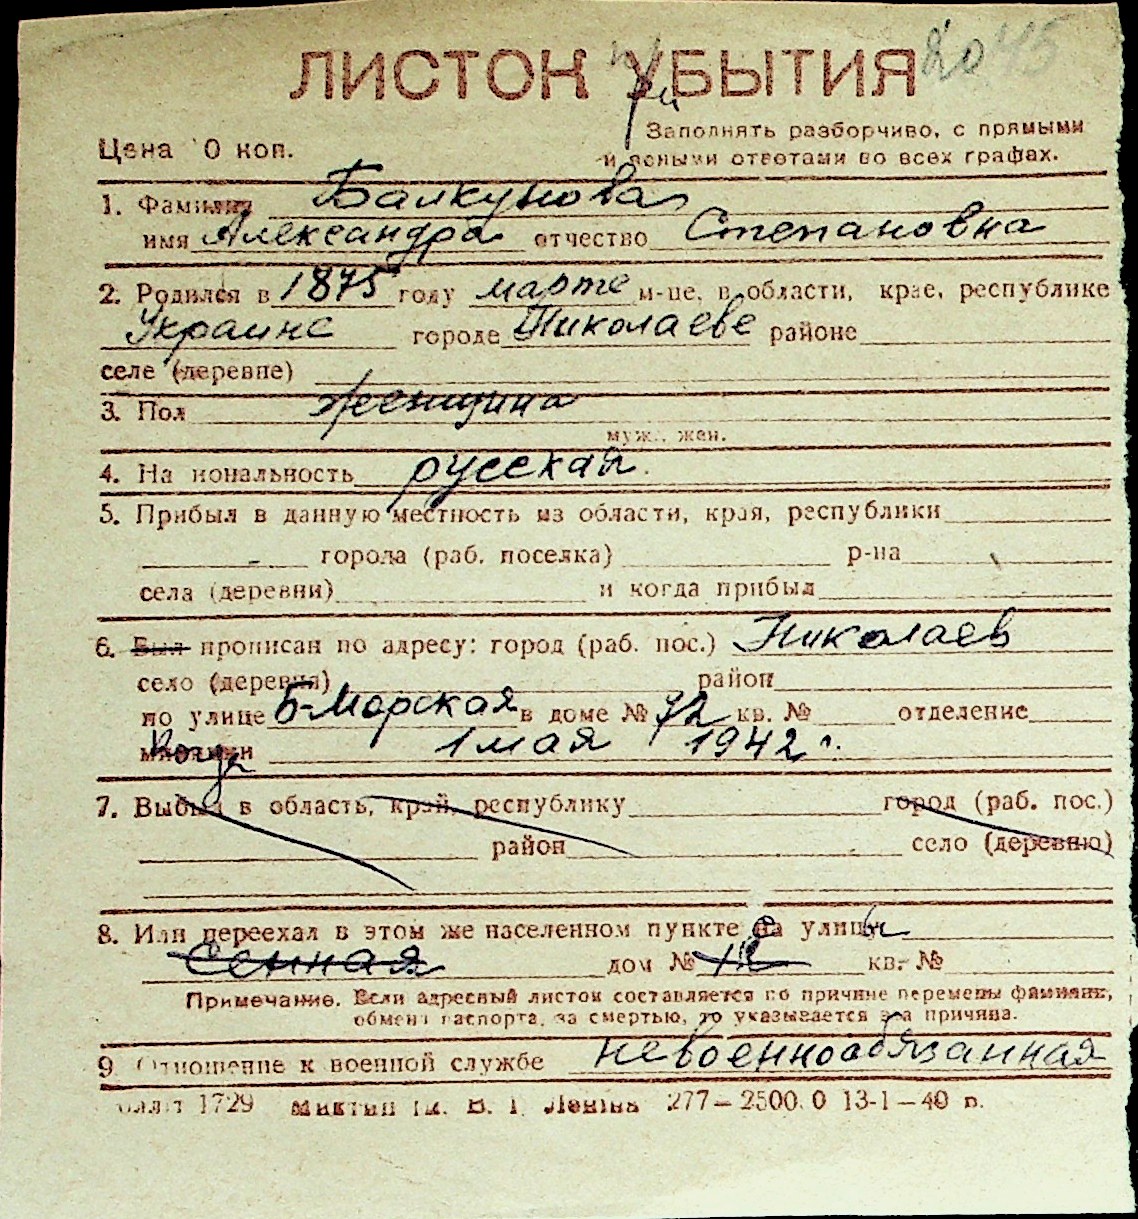 2045
ЛИСТОК УБЫТИЯ
при
Цена 10 коп.
Заполнять разборчиво, с прямыми
и ясными ответами во всех графах.
1. Фамилия Балкунова
имя Александра отчество Степановна
2. Родился в 1875 году марте м-це, в области, крае, республике
Украине городе Николаеве районе
селе (деревне)
3. Пол женщина
муж., жен.
4. Национальность русская.
5. Прибыл в данную местность из области, края, республики
города (раб. поселка) р-на
села (деревни) и когда прибыл
6. Был прописан по адресу: город (раб. пос.) Николаев
село (деревня) район
по улице Б-Морская в доме № 72 кв. № отделение
милиции Когда 1 мая 1942 г.
7. Выбыл в область, край, республику город (раб. пос.)
район село (деревню)
8. Или переехал в этом же населенном пункте с улицы
Сенная дом № 12 кв. №
Примечание. Если адресный листок составляется по причине перемены фамилии,
обмена паспорта, за смертью, то указывается эта причина.
9. Отношение к военной службе невоеннообязанная
1729 В. І. Леніна 277—2500.0 13-1—40 р.